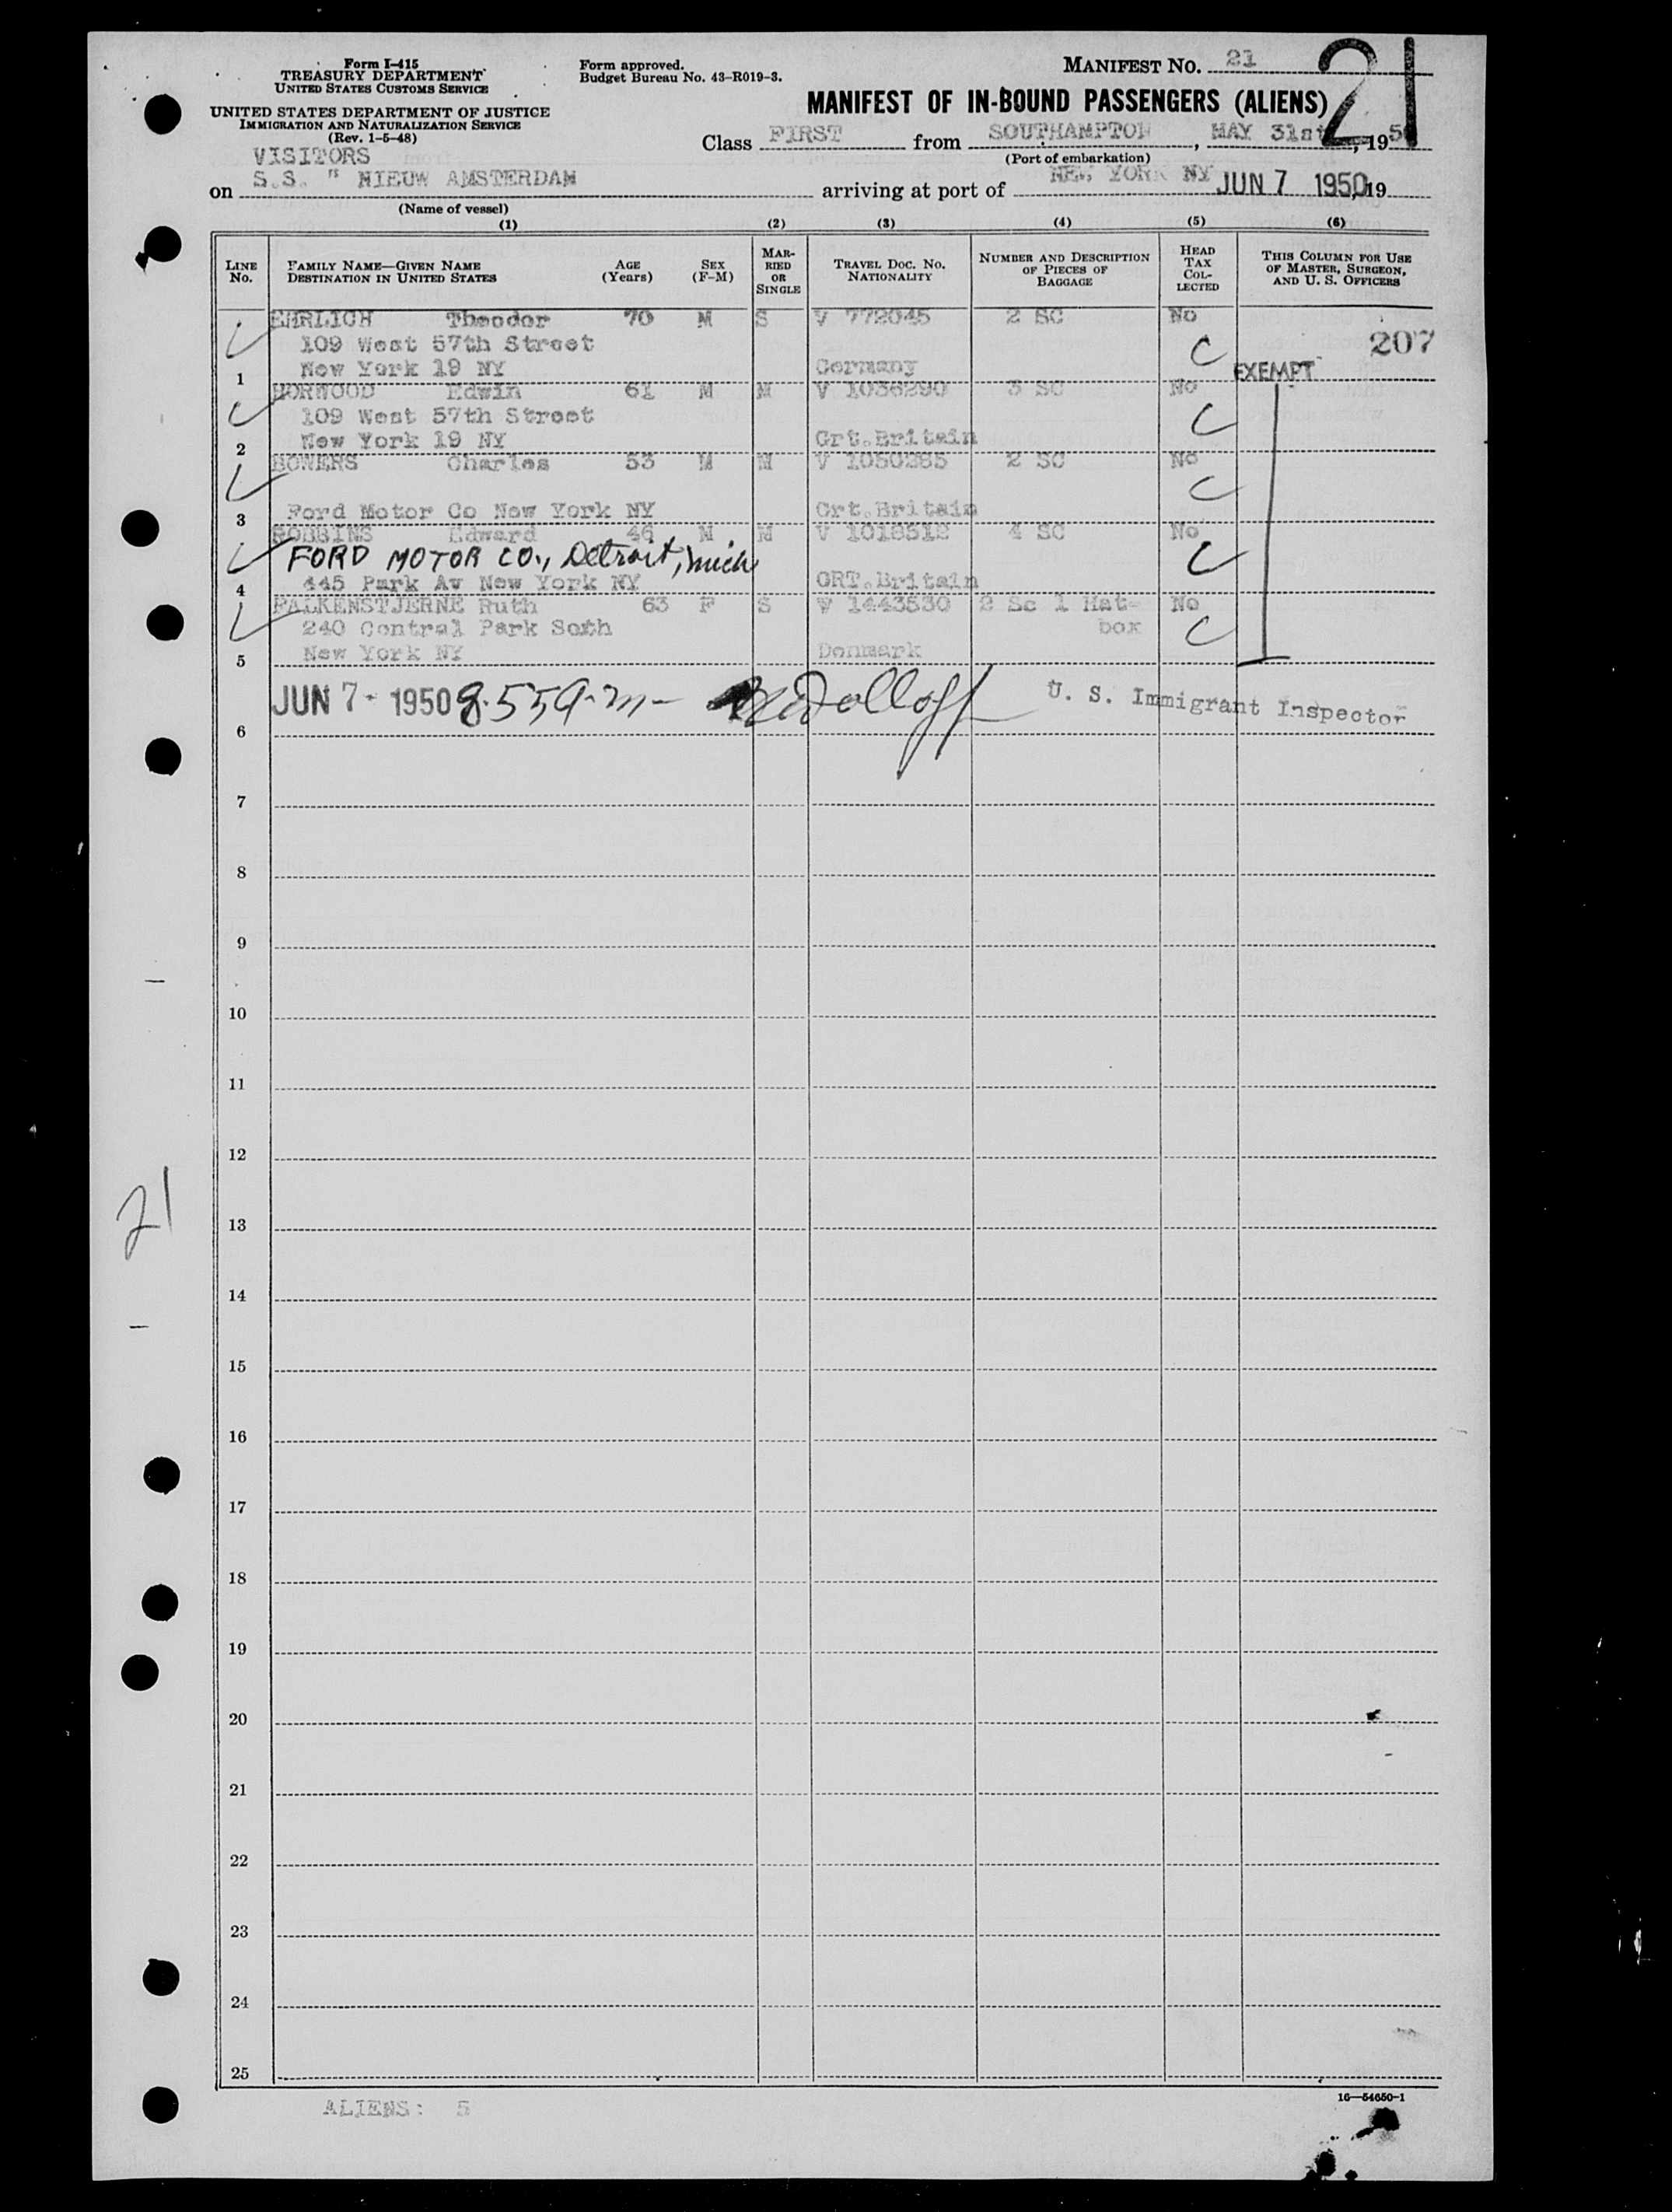 Form I-415
TREASURY DEPARTMENT
UNITED STATES CUSTOMS SERVICE
UNITED STATES DEPARTMENT OF JUSTICE
IMMIGRATION AND NATURALIZATION SERVICE
(Rev. 1-5-48)
Form approved.
Budget Bureau No. 43-R019-3.
MANIFEST NO. 21
21
MANIFEST OF IN-BOUND PASSENGERS (ALIENS)
Class FIRST from SOUTHAMPTON, MAY 31st, 1950
(Port of embarkation)
VISITORS
on S.S. " NIEUW AMSTERDAM arriving at port of NEW YORK NY JUN 7 1950, 19
(Name of vessel)
(1) (2) (3) (4) (5) (6)
LINE No. FAMILY NAME—GIVEN NAME DESTINATION IN UNITED STATES AGE (Years) SEX (F-M) MARRIED OR SINGLE TRAVEL DOC. NO. NATIONALITY NUMBER AND DESCRIPTION OF PIECES OF BAGGAGE HEAD TAX COLLECTED THIS COLUMN FOR USE OF MASTER, SURGEON, AND U. S. OFFICERS
EHRLICH Theodor 70 M S V 772045 2 SC No
109 West 57th Street C 207
1 New York 19 NY Germany EXEMPT
HORWOOD Edwin 61 M M V 1036290 3 SC No
109 West 57th Street C
2 New York 19 NY Grt.Britain
BOWERS Charles 53 M M V 1050285 2 SC No
C
3 Ford Motor Co New York NY Grt.Britain
ROBBINS Edward 46 M M V 1018512 4 SC No
FORD MOTOR CO., Detroit, Mich C
4 445 Park Av New York NY GRT.Britain
FALKENSTJERNE Ruth 63 F S V 1443530 2 Sc 1 Hat- No
240 Central Park South box C
5 New York NY Denmark
JUN 7 - 1950 8.55 a.m- U. S. Immigrant Inspector
6
7
8
9
10
11
12
21
13
14
15
16
17
18
19
20
21
22
23
24
25
ALIENS: 5
16—54650-1